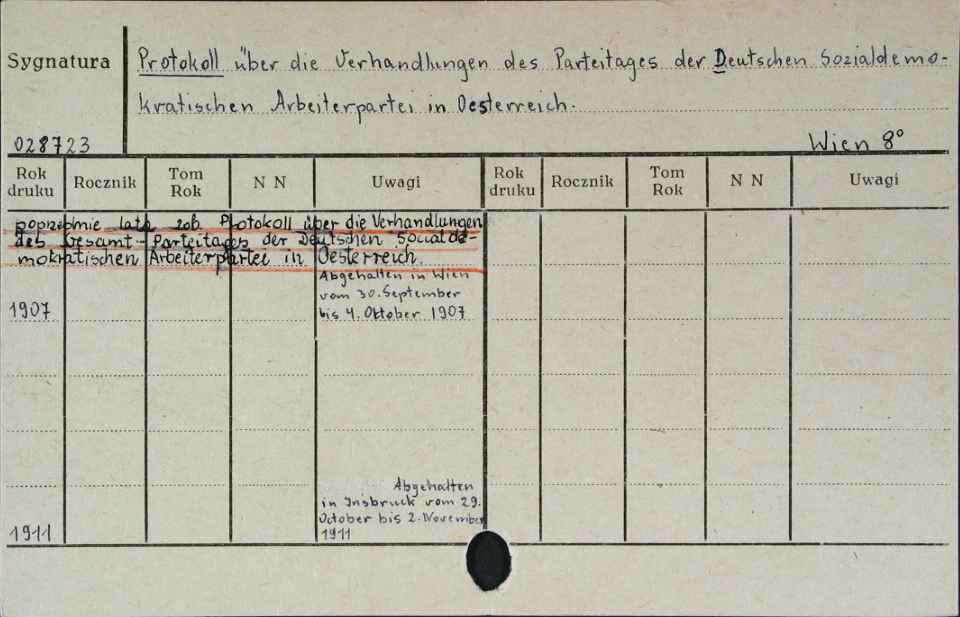 Sygnatura
Protokoll über die Verhandlungen des Parteitages der Deutschen Sozialdemo-
kratischen Arbeiterpartei in Oesterreich.
028723
Wien 8°
Rok druku Rocznik Tom Rok N N Uwagi Rok druku Rocznik Tom Rok N N Uwagi
poprzednie lata zob. Protokoll über die Verhandlungen
des Gesamt-Parteitages der Deutschen Socialde-
mokratischen Arbeiterpartei in Oesterreich.
Abgehalten in Wien
vom 30. September
1907 bis 4. Oktober 1907
Abgehalten
in Insbruck vom 29.
October bis 2. November
1911 1911